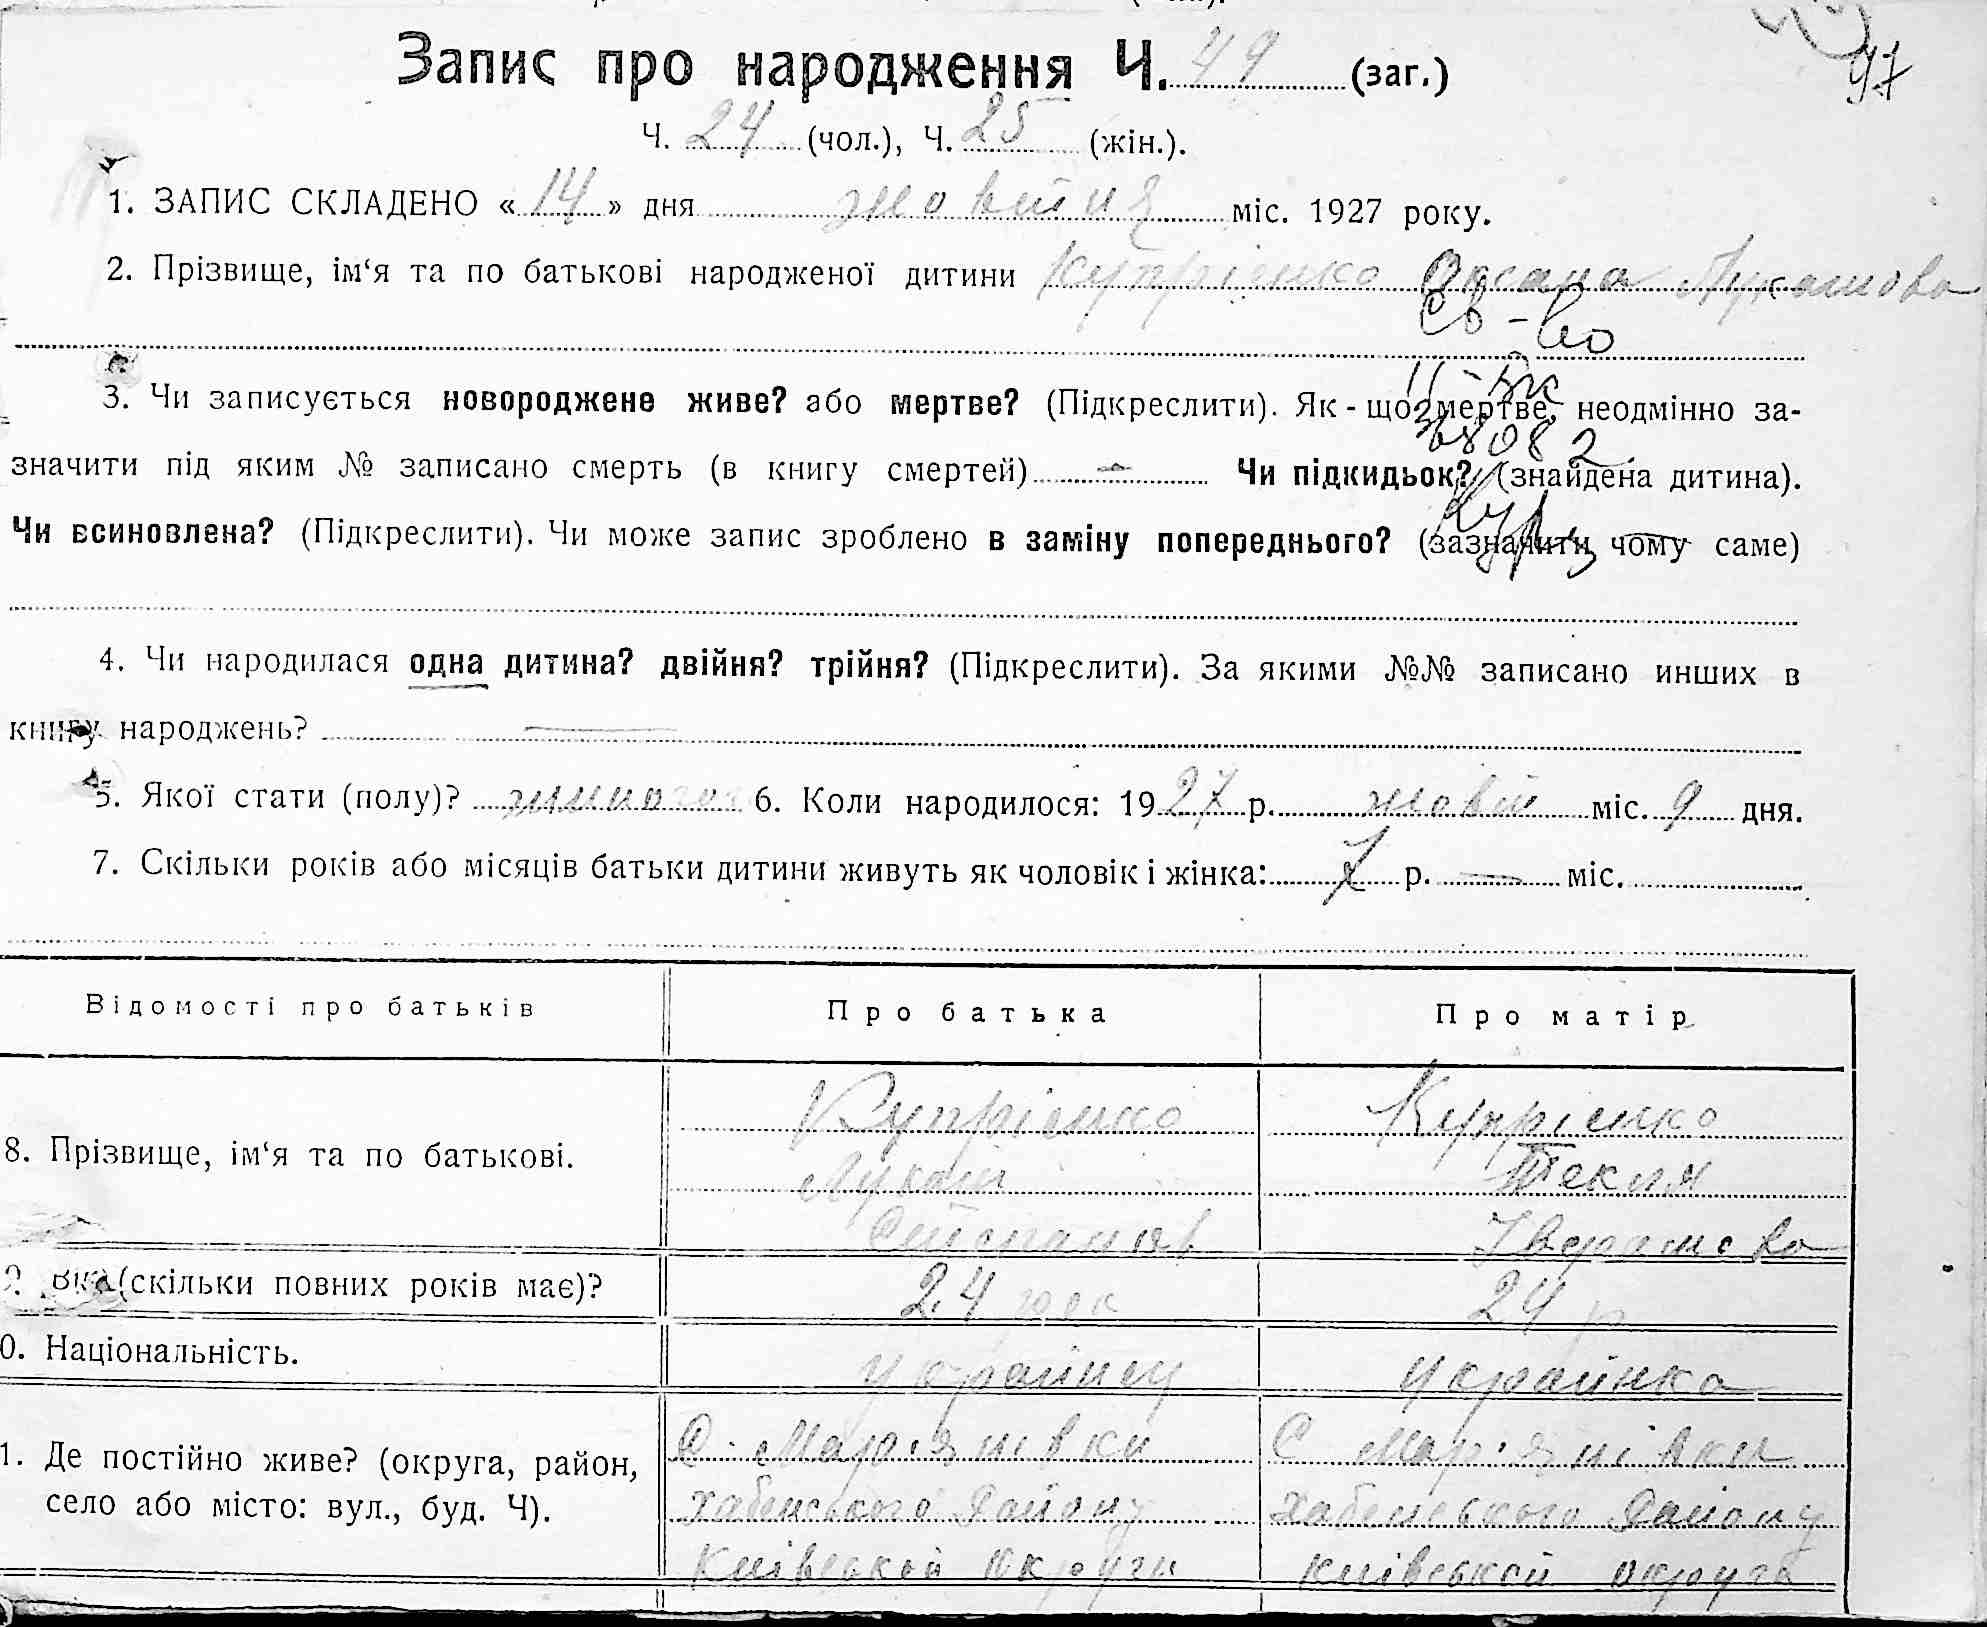 Запис про народження Ч. 49 (заг.)
97
Ч. 24 (чол.), Ч. 25 (жін.).
1. ЗАПИС СКЛАДЕНО «14» дня жовтня міс. 1927 року.
2. Прізвище, ім‘я та по батькові народженої дитини Купрієнко Оксана Лукашова
Св-во
3. Чи записується новороджене живе? або мертве? (Підкреслити). Як-що мертве, неодмінно за-
значити під яким № записано смерть (в книгу смертей) — Чи підкидьок? (знайдена дитина).
Чи всиновлена? (Підкреслити). Чи може запис зроблено в заміну попереднього? (зазначити чому саме)
4. Чи народилася одна дитина? двійня? трійня? (Підкреслити). За якими №№ записано инших в
книгу народжень? —
5. Якої стати (полу)? жиночого 6. Коли народилося: 1927 р. жовт міс. 9 дня.
7. Скільки років або місяців батьки дитини живуть як чоловік і жінка: 7 р. — міс.
Відомості про батьків Про батька Про матір
Купрієнко Купрієнко
8. Прізвище, ім‘я та по батькові. Лукаш Текля
Степанов
9. Вік (скільки повних років має)? 24 рок 24 р
0. Національність. українец українка
1. Де постійно живе? (округа, район, С. Мар'янівки С Мар'янівки
село або місто: вул., буд. Ч). Хабенського Району Хабенського Району
Київськой Округи Київськой округи